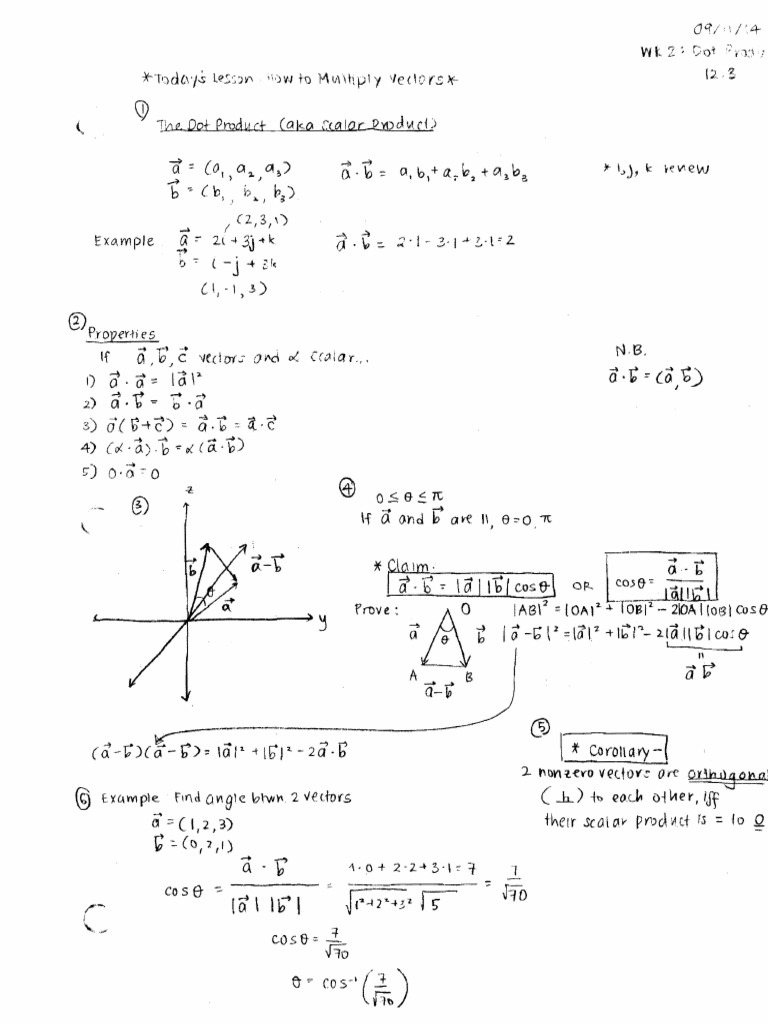 09/11/14
WK 2: Dot
12.3
*Today's Lesson: How to Multiply Vectors*
① The Dot Product (aka Scalar Product)
a⃗ = (a₁, a₂, a₃)    a⃗ · b⃗ = a₁b₁ + a₂b₂ + a₃b₃    * i, j, k review
b⃗ = (b₁, b₂, b₃)
(2,3,1)
Example a⃗ = 2i + 3j + k    a⃗ · b⃗ = 2·1 - 3·1 + 3·1 = 2
b⃗ = i - j + 3k
(1, -1, 3)
② Properties
If a⃗, b⃗, c⃗ vectors and α scalar...
1) a⃗ · a⃗ = |a⃗|²
2) a⃗ · b⃗ = b⃗ · a⃗
3) a⃗(b⃗ + c⃗) = a⃗ · b⃗ = a⃗ · c⃗
4) (α · a⃗) · b⃗ = α(a⃗ · b⃗)
5) 0 · a⃗ = 0
N.B.
a⃗ · b⃗ = (a⃗, b⃗)
③
z
b⃗
a⃗ - b⃗
θ
a⃗
y
④ 0 ≤ θ ≤ π
If a⃗ and b⃗ are ||, θ = 0, π
* Claim:
a⃗ · b⃗ = |a⃗||b⃗| cosθ OR cosθ = a⃗ · b⃗ / |a⃗||b⃗|
Prove: O |AB|² = |OA|² + |OB|² - 2|OA||OB| cosθ
a⃗ θ b⃗ |a⃗ - b⃗|² = |a⃗|² + |b⃗|² - 2|a⃗||b⃗| cosθ
A B
a⃗ - b⃗
"
a⃗ b⃗
(a⃗ - b⃗)(a⃗ - b⃗) = |a⃗|² + |b⃗|² - 2a⃗ · b⃗
⑤ * Corollary -
2 nonzero vectors are orthogonal
(⊥) to each other, iff
their scalar product is = to 0
⑥ Example Find angle btwn 2 vectors
a⃗ = (1,2,3)
b⃗ = (0,2,1)
cosθ = a⃗ · b⃗ / |a⃗| |b⃗| = 1·0 + 2·2 + 3·1 = 7 / √1²+2²+3² √5 = 7/√70
cosθ = 7/√70
θ = cos⁻¹(7/√70)